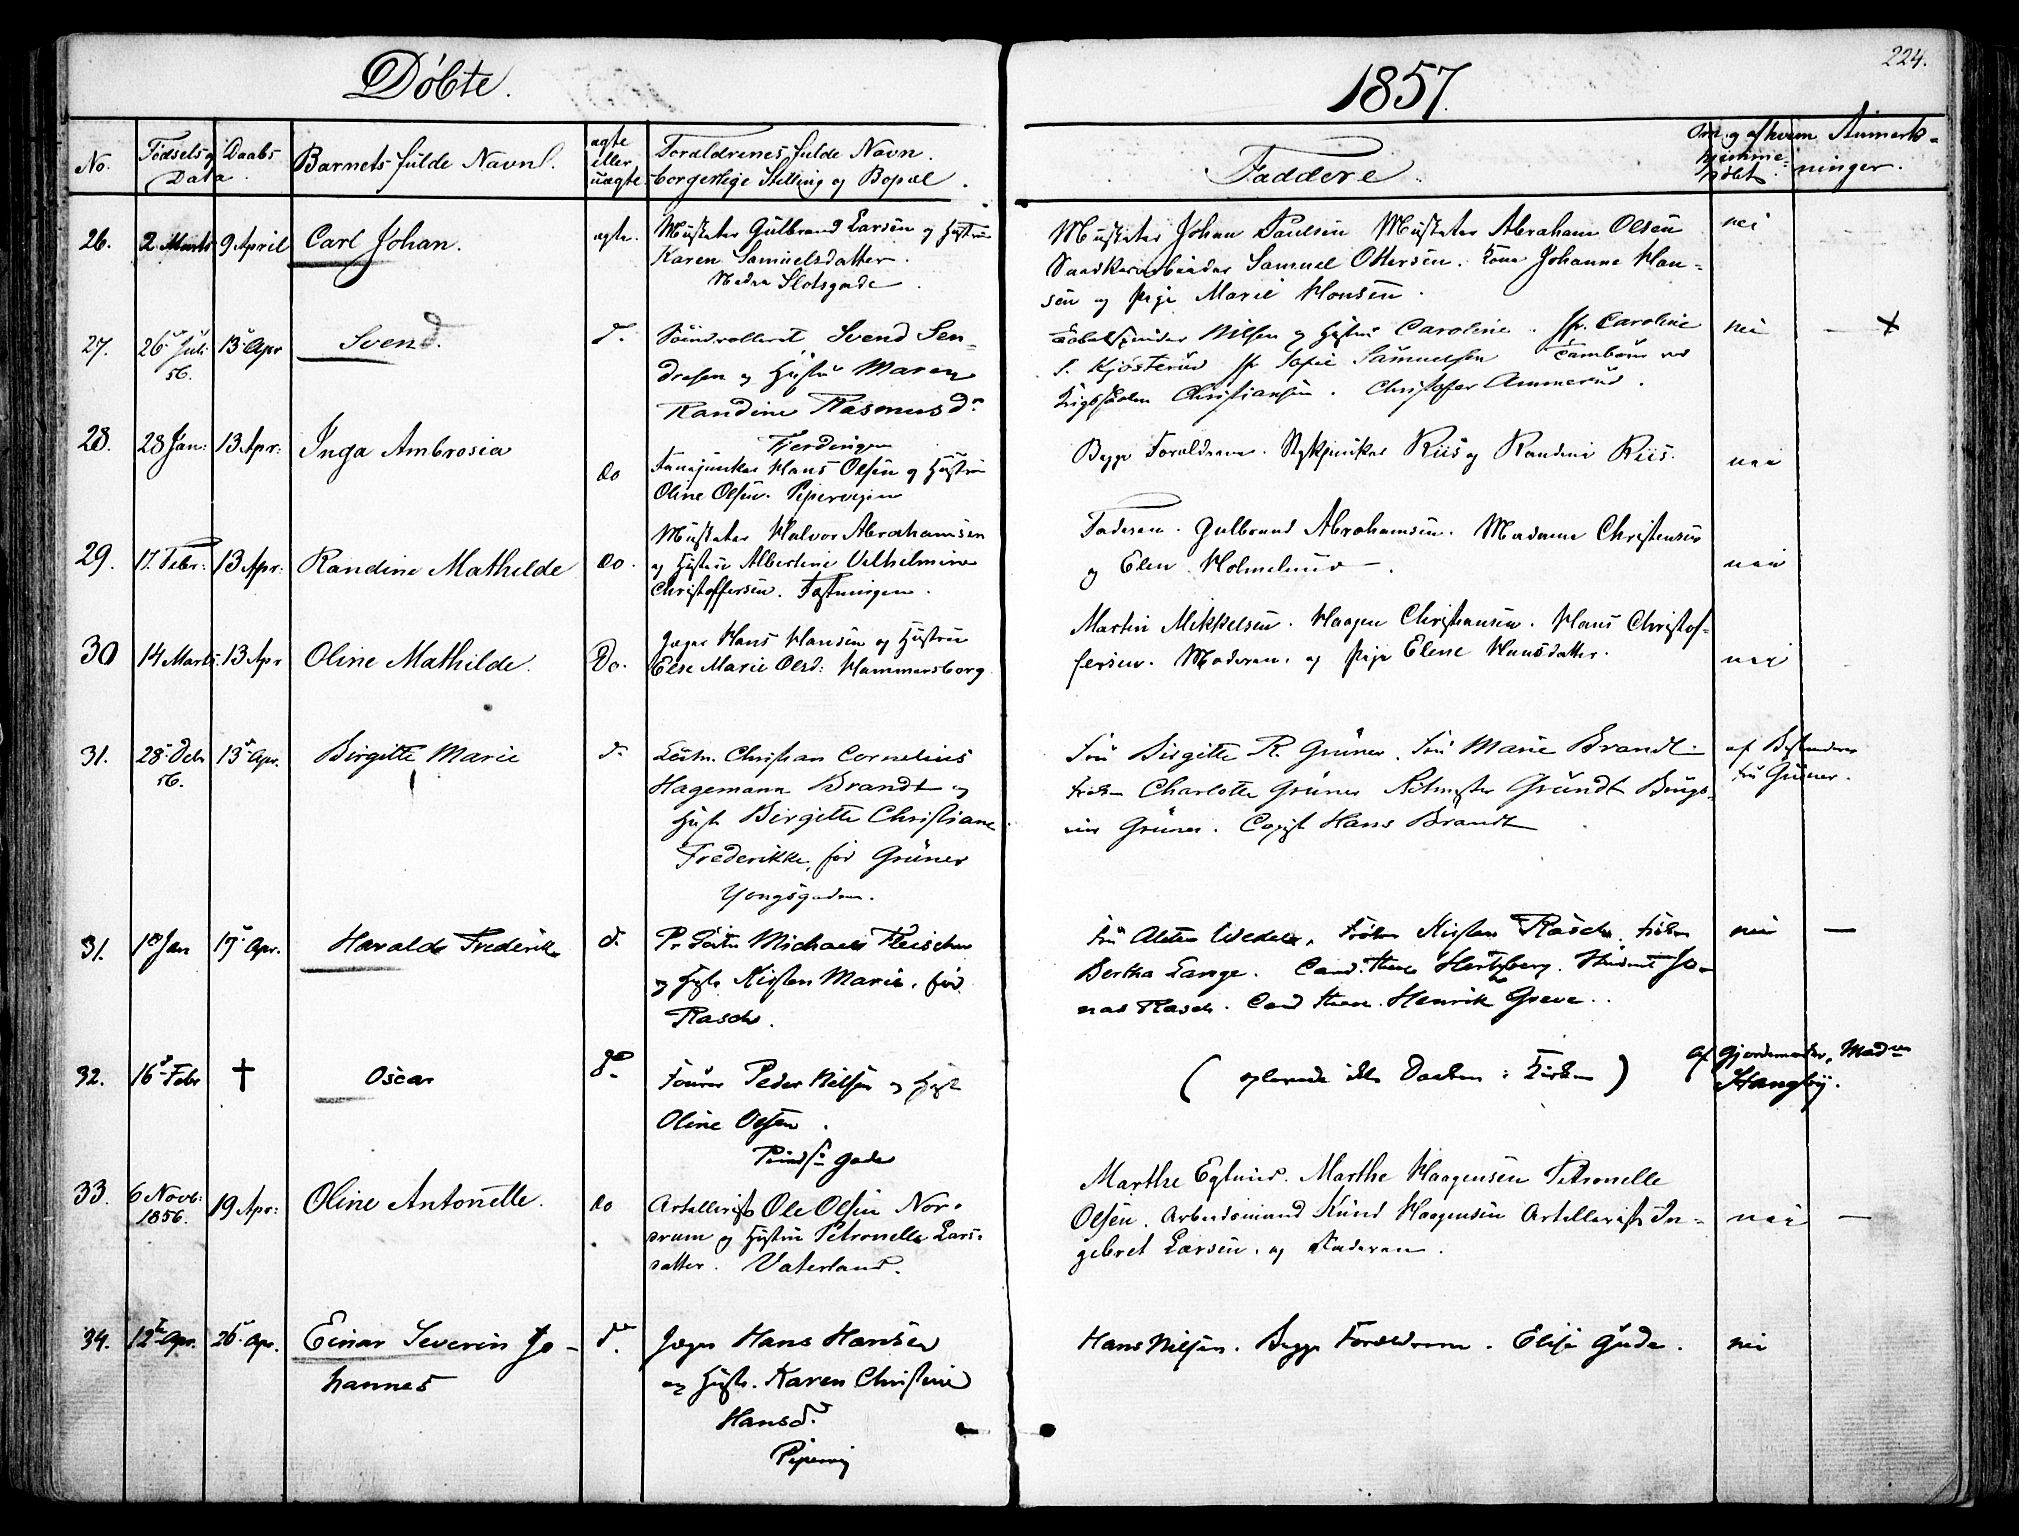 Døbte.
1857.
224.
No.
Fødsels og Daabs
Data.
Barnets fulde Navn.
ægte
eller
uægte.
Forældrenes fulde Navn.
borgerlige Stilling og Bopæl.
Faddere.
Om og af hvem
hjemme-
døbt.
Anmærk-
ninger.
26. 2 Marts 9 April Carl Johan. ægte. Musketer Gulbrand Larsen og Hustru
Karen Samuelsdatter.
Nedre Slotsgade.
Musketer Johan Paulsen Musketer Abraham Olsen nei
Samuel Ottersen. Kone Johanne Han-
sen og Pige Marie Hansen.
27. 26 Juli 13 Apr Svend. d.
56.
Svend Sen-
dresen og Hustru Maren
Randine Rasmusd.
Fjerdingen
Nilsen og Hustru Caroline. Jfr. Caroline nei — x
S. Kjösterud Jfr Sofie Samuelsen Tambour ved
Christiansen. Christofer Ammerud.
28. 28 Jan: 13 Apr: Inga Ambrosia do
Fanejunker Hans Olsen og Hustru
Oline Olsen. Pipervigen
Begge Forældrene. Stykjunker Riis og Randine Riis. nei
29. 17. Febr: 13 Apr: Randine Mathilde do.
Musketer Halvor Abrahamsen
og Hustru Albertine Vilhelmine
Christoffersen. Fæstningen.
Faderen. Gulbrand Abrahamsen. Madame Christensen
og Elen Holmelund —. nei
30 14 Marts 13 Apr Oline Mathilde. Do.
Jæger Hans Hansen og Hustru
Else Marie Olsd: Hammersborg
Martin Mikkelsen. Haagen Christiansen. Hans Christof-
fersen. Moderen. og Pige Elene Hansdatter. nei
31. 28 Debr 13 Apr. Birgitte Marie d.
56.
Leitn. Christian Cornelius
Hagemann Brandt og
Hust. Birgitte Christiane
Frederikke, før Grüner
Yongsgaden.
Fru Birgitte R. Grüner. Fru Marie Brandt. af Bestemoder
Frøken Charlotte Grüner Ritmester Gründt Bergs- Fru Grüner.
Grüner. Copist Hans Brandt
31. 1 Jan 19 Apr. Harald Frederik d.
Pr. Leitn Michael Fleischer
og Hust. Kirsten Marie, før
Rasch.
Fru Wedel, Frøken Kirsten Rasch. Frøken nei —
Bertha Lange. Cand. theol Hertzberg. Student Jo-
nas Rasch. Cand theol. Henrik Greve.
32. 16 Febr † Oscar do
Fourer Peder Nilsen og Hust
Oline Olsen.
gade
( oplevede ikke Daaben i Kirken )
af Gjordemoder, Mad
Stangby.
33. 6 Novb: 19 Apr: Oline Antonette. do
1856.
Artellerist Ole Olsen Nor-
drum og Hustru Petronelle Lars-
datter. Vaterland.
Marthe Eglund. Marthe Haagensen Petronelle
Olsen. Arbeidsmand Knud Haagensen Artellerist In- nei —
gebret Larsen. og Faderen.
34. 12 Apr. 26 Apr. Einar Severin Jo- d.
hannes
Jæger Hans Hansen
og Hust. Karen Christine
Hansd.
Pipervig
Hans Nilsen. Begge Forældrene. Elise Gude. nei